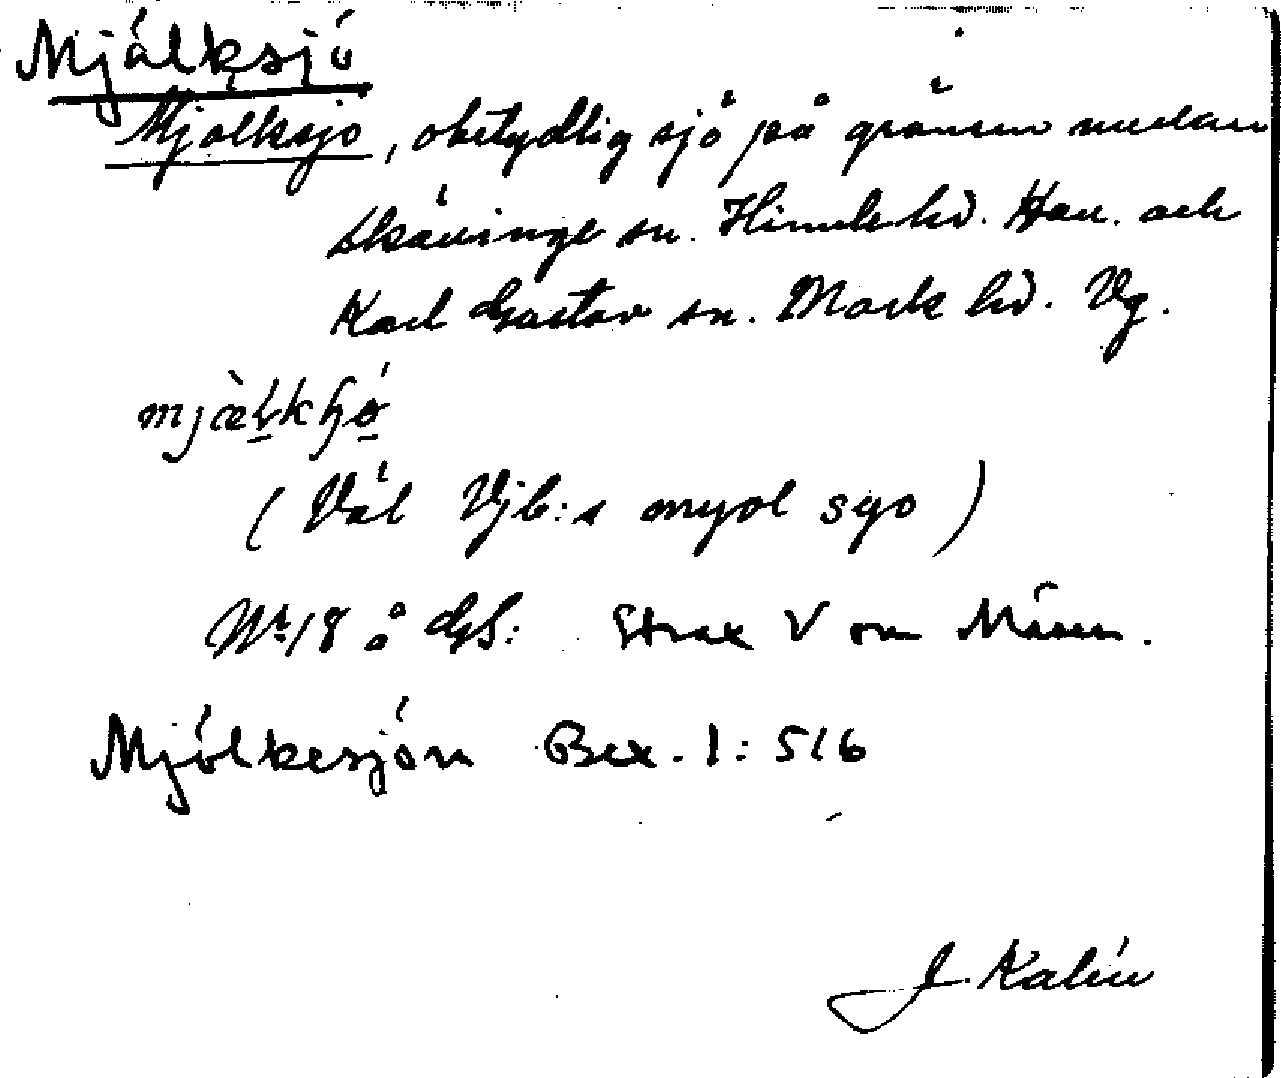 Mjälksjö
Mjölksjö, obetydlig sjö på gränsen mellan
Skällinge sn. Himle hd. Hall. och
Karl Gustav sn. Mark hd. Vg.
mjæ̀lkʃö
(Väl Vjb:s myol syo)
Nr 18 å GS: Strax V om
Mjölkesjön Bex. 1:516
J. Kalén